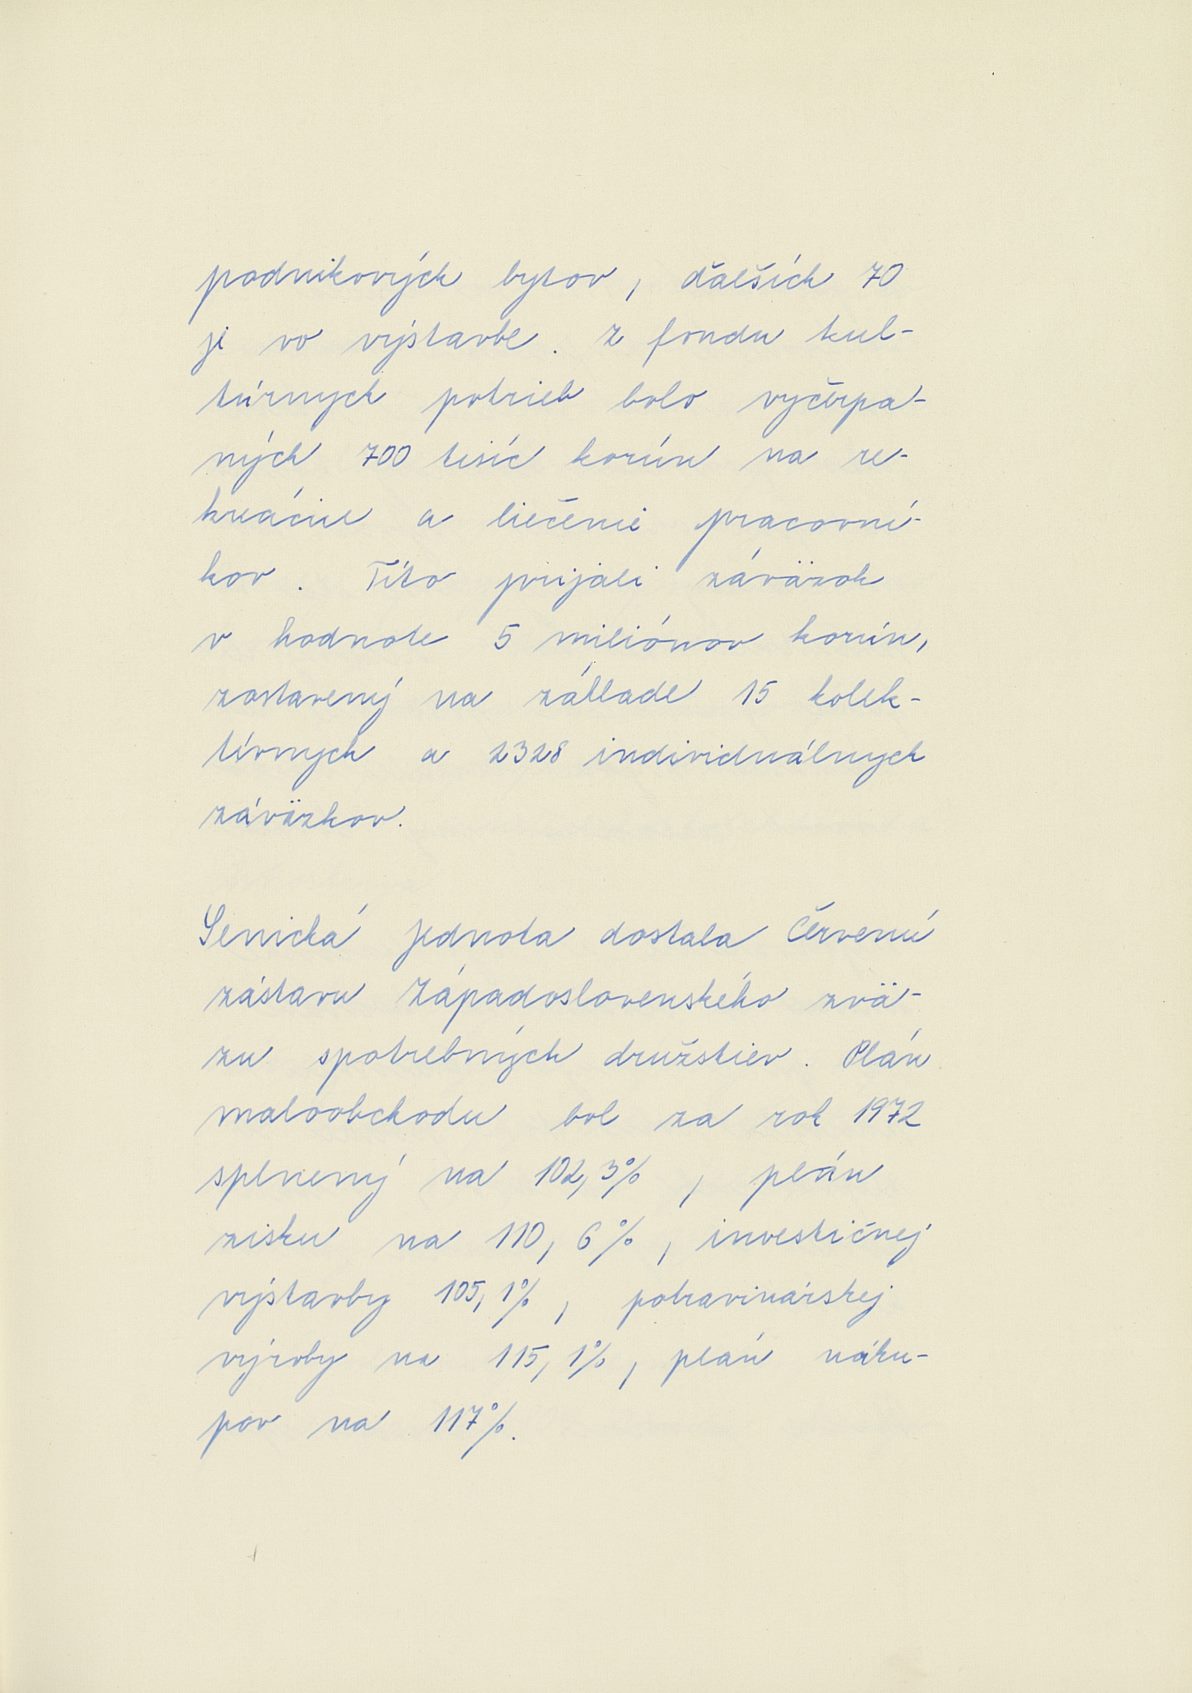 podnikových bytov, ďalších 70
je vo výstavbe. Z fondu kul-
túrnych potrieb bolo vyčerpa-
ných 700 tisíc korún na re-
kreácie a liečenie pracovní-
kov. Títo prijali záväzok
v hodnote 5 miliónov korún,
zostavený na základe 15 kolek-
tívnych a 2328 individuálnych
záväzkov.
Senická jednota dostala Červenú
zástavu Západoslovenského zvä-
zu spotrebných družstiev. Plán
maloobchodu bol za rok 1972
splnený na 102,3%, plán
zisku na 110,6%, investičnej
výstavby 105,1%, potravinárskej
výroby na 115,1%, plán náku-
pov na 117%.